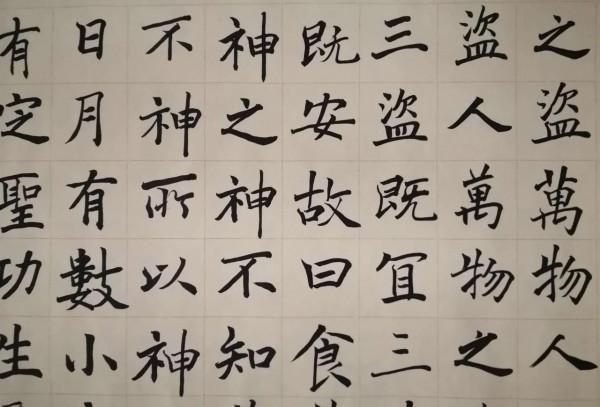 之盜萬物人
盜人萬物之
三盜既冝三
既安故曰食
神之神不知
不神所以神
日月有數小
有定聖功生